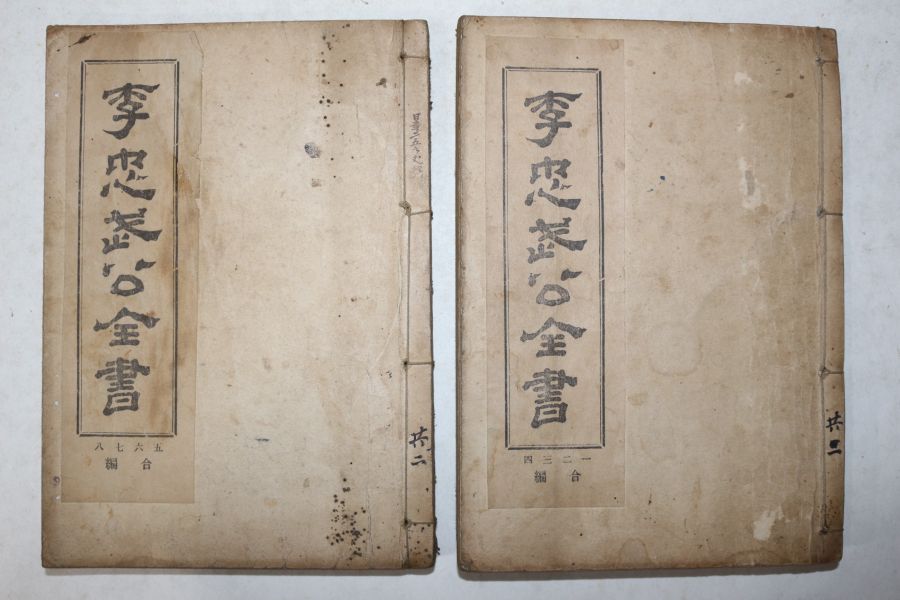 李忠武公全書
五六七八
合編
共二
李忠武公全書
一二三四
合編
共二